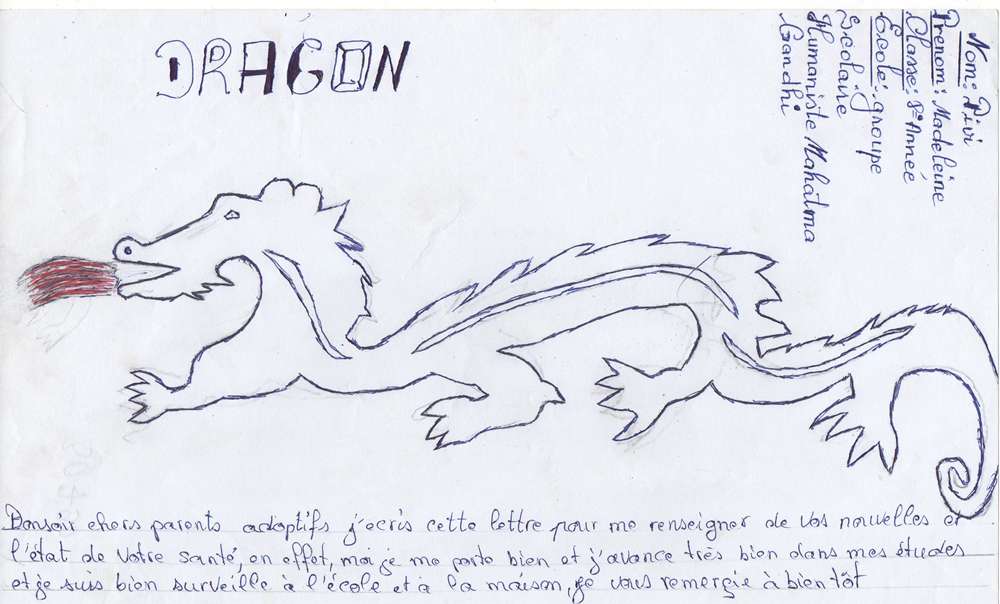 DRAGON
Nom: Pivi
Prenom: Madeleine
Classe: 8e Année
Ecole: groupe
Scolaire
Humaniste Mahatma
Gandhi
Bonsoir chers parents adoptifs j'ecris cette lettre pour me renseigner de vos nouvelles et
l'état de votre santé, en effet, moi je me porte bien et j'avance très bien dans mes études
et je suis bien surveille à l'école et à la maison, je vous remerçie à bientôt